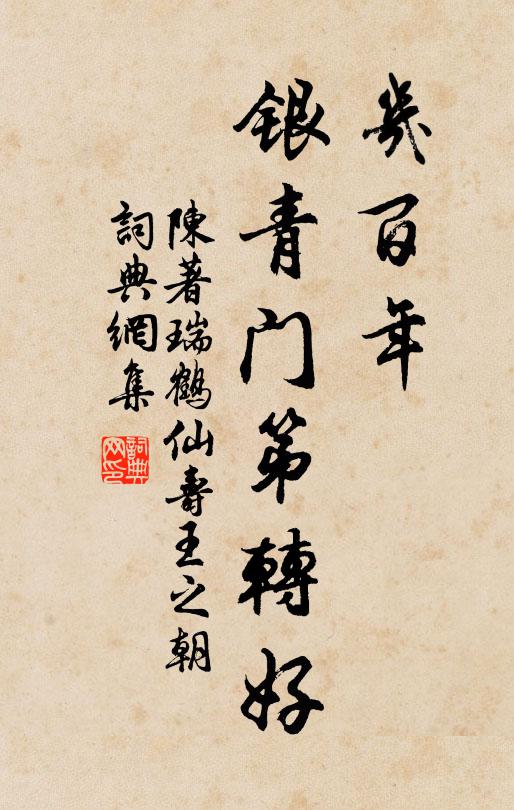 幾百年
銀青門第轉好
陳著瑞鶴仙壽王之朝
詞典網集
詞典網印